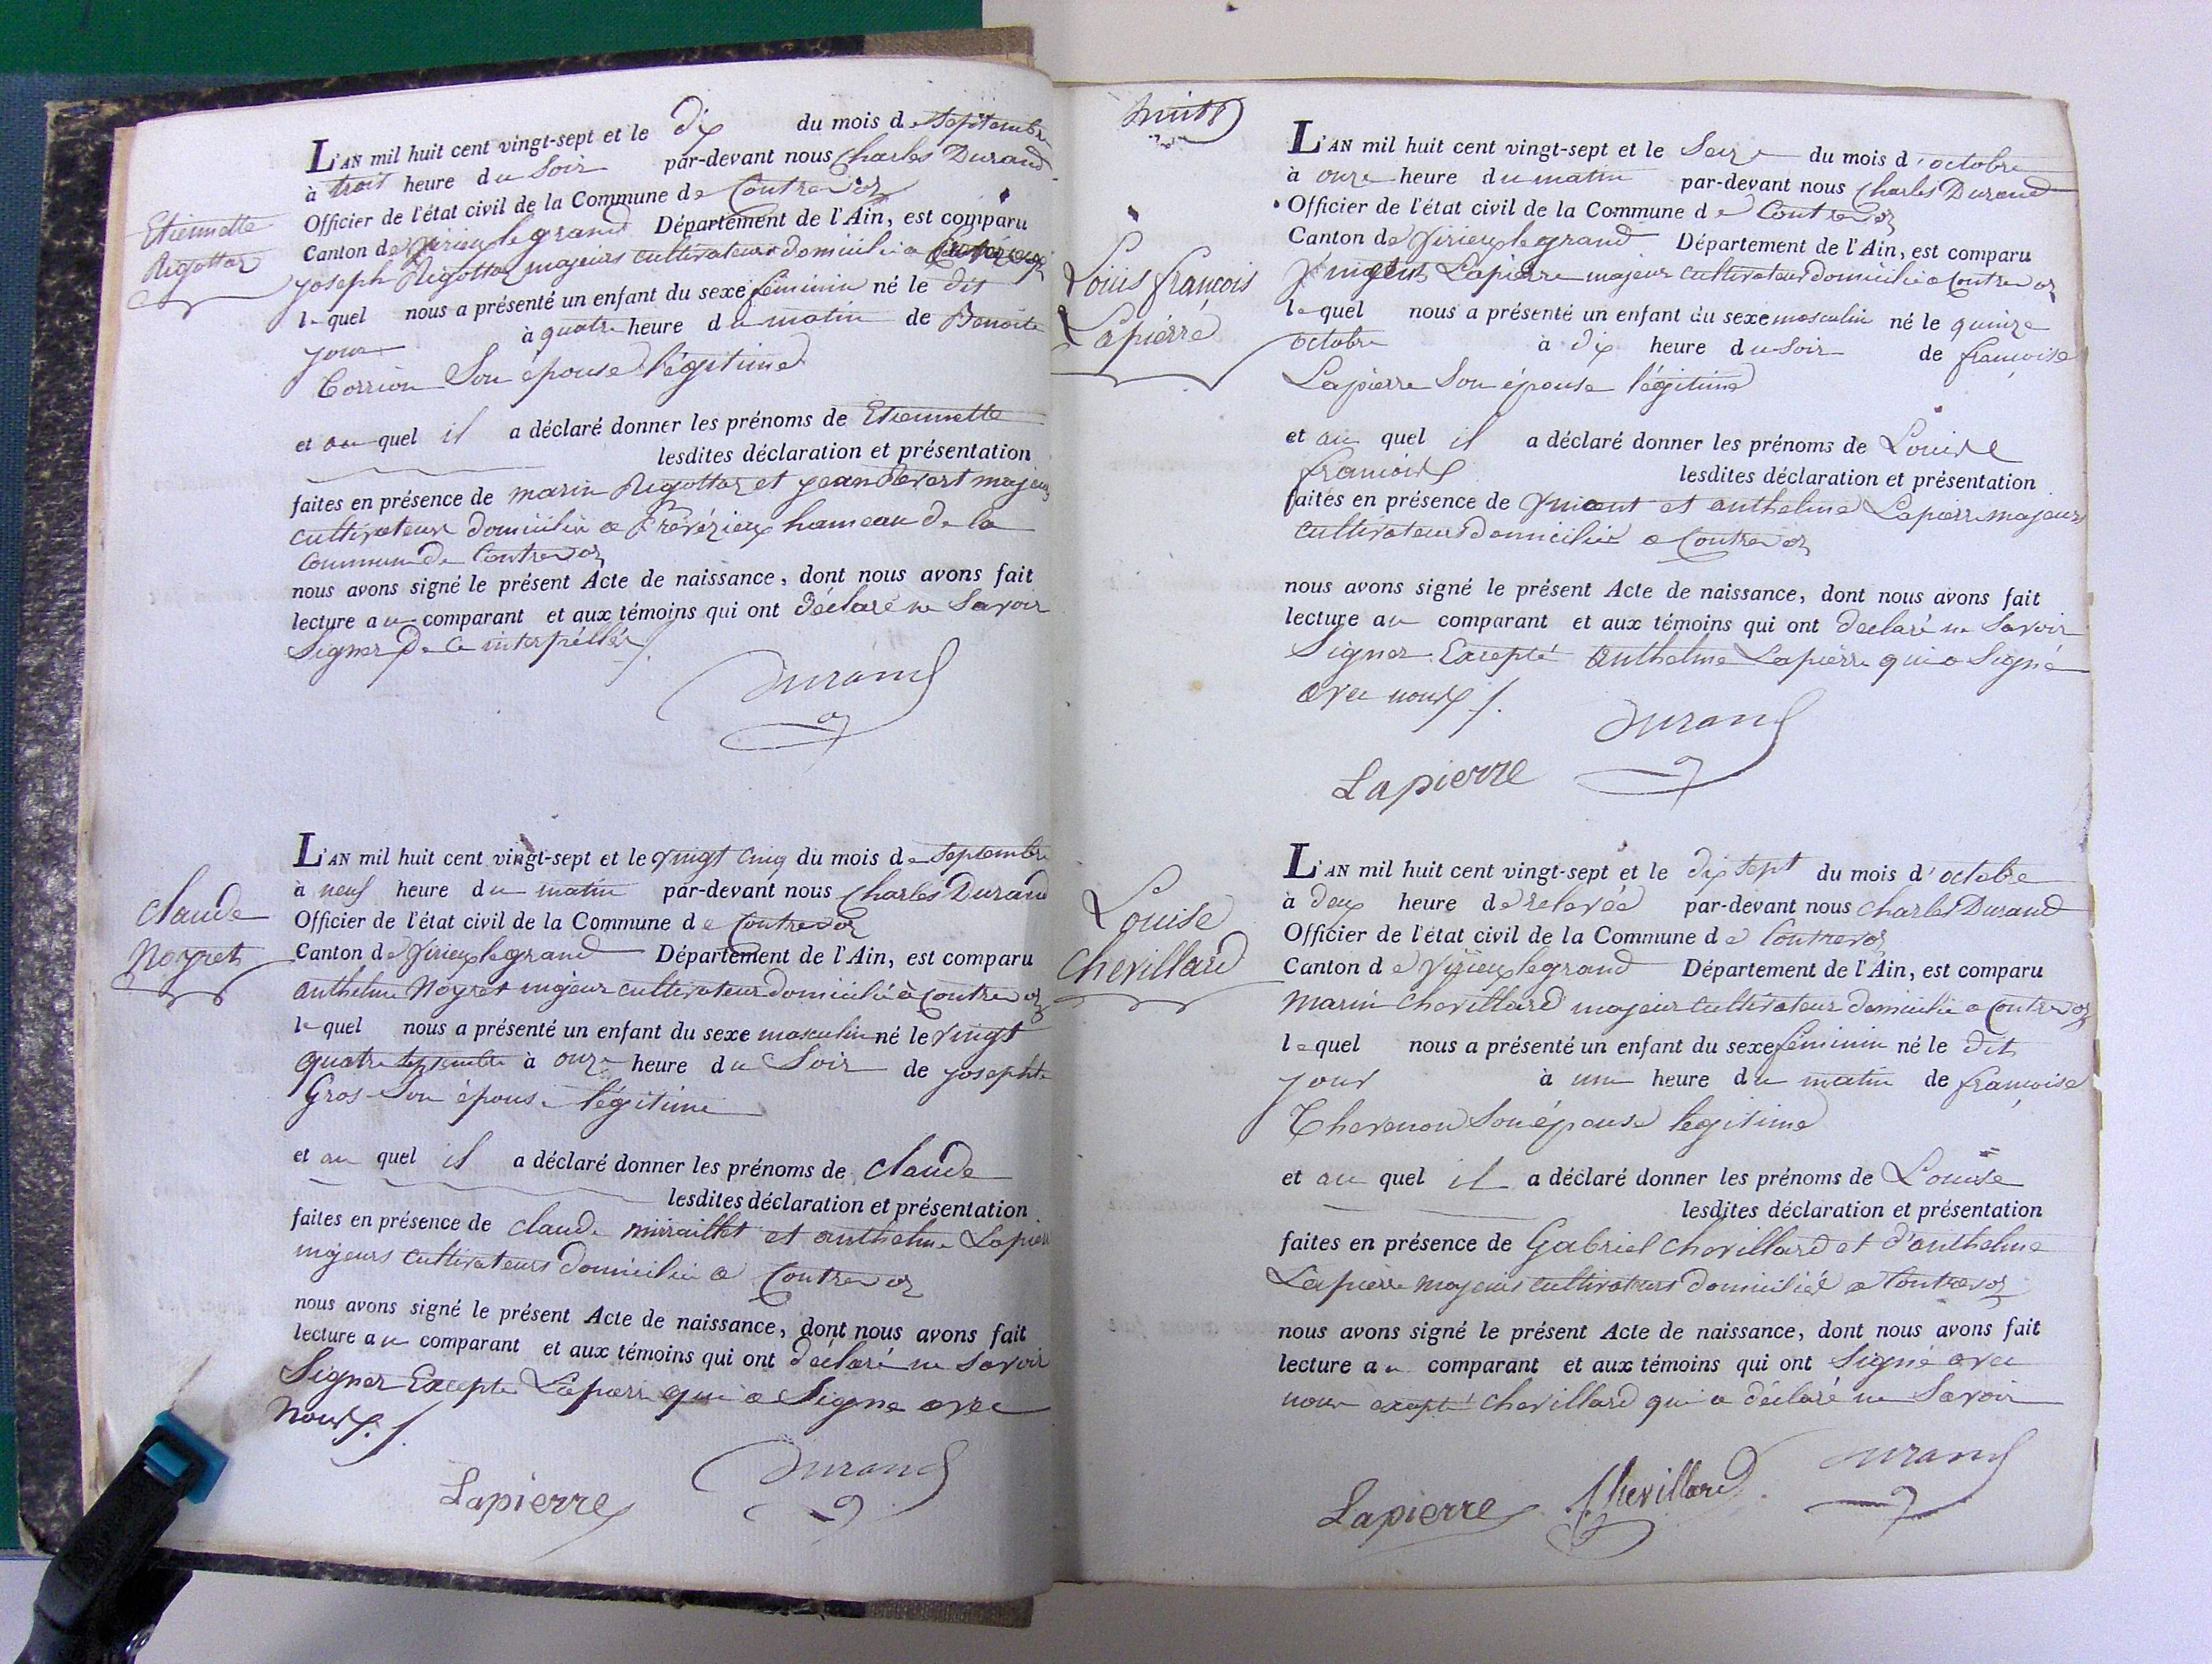 Etiennette
Rigottaz
L'AN mil huit cent vingt-sept et le dix du mois de Septembre
à trois heure du Soir par-devant nous Charles Durand
Officier de l'état civil de la Commune de Contrevoz
Canton de Virieu le grand Département de l'Ain, est comparu
joseph Rigottaz majeurs cultivateur domicilié a
le quel nous a présenté un enfant du sexe féminin né le dit
jour à quatre heure du matin de Benoite
Corrion Son épouse légitime
et au quel il a déclaré donner les prénoms de Etiennette
lesdites déclaration et présentation
faites en présence de marin Rigottaz et jean Revert majeurs
cultivateurs domicilié a Prévézieux hameau de la
Commune de Contrevoz
nous avons signé le présent Acte de naissance, dont nous avons fait
lecture au comparant et aux témoins qui ont déclaré ne Savoir
Signer de ce interpéllés /.
Durand
Claude
Noyret
L'AN mil huit cent vingt-sept et le vingt cinq du mois de Septembre
à neuf heure du matin par-devant nous Charles Durand
Officier de l'état civil de la Commune de Contrevoz
Canton de Virieu le grand Département de l'Ain, est comparu
anthelme Noyret majeur cultivateur domicilié à Contrevoz
le quel nous a présenté un enfant du sexe masculin né le vingt
quatre septembre à onze heure du Soir de josephte
Gros Son épouse légitime
et au quel il a déclaré donner les prénoms de Claude
lesdites déclaration et présentation
faites en présence de Claude mirraillet et anthelme Lapierre
majeurs cultivateurs domicilié a Contrevoz
nous avons signé le présent Acte de naissance, dont nous avons fait
lecture au comparant et aux témoins qui ont déclaré ne Savoir
Signer Excepté Lapierre qui a Signé avec
Nous /.
Lapierre Durand
huit
Louis françois
Lapierre
L'AN mil huit cent vingt-sept et le Seize du mois d'octobre
à onze heure du matin par-devant nous Charles Durand
Officier de l'état civil de la Commune de Contrevoz
Canton de Virieu le grand Département de l'Ain, est comparu
Lapierre majeur cultivateur domicilié a Contrevoz
le quel nous a présenté un enfant du sexe masculin né le quinze
octobre à dix heure du Soir de françoise
Lapierre Son épouse légitime
et au quel il a déclaré donner les prénoms de Louis
françois lesdites déclaration et présentation
faites en présence de Vincent et anthelme Lapierre majeurs
cultivateurs domicilié a Contrevoz
nous avons signé le présent Acte de naissance, dont nous avons fait
lecture au comparant et aux témoins qui ont déclaré ne Savoir
Signer Excepté anthelme Lapierre qui a Signé
avec nous /.
Durand
Lapierre
Louise
Chevillard
L'AN mil huit cent vingt-sept et le dix sept du mois d'octobre
à deux heure de relevée par-devant nous Charles Durand
Officier de l'état civil de la Commune de Contrevoz
Canton de Virieu le grand Département de l'Ain, est comparu
Marin Chevillard majeur cultivateur domicilié a Contrevoz
le quel nous a présenté un enfant du sexe féminin né le dit
jour à une heure du matin de françoise
Thevenon Son épouse légitime
et au quel il a déclaré donner les prénoms de Louise
lesdites déclaration et présentation
faites en présence de Gabriel Chevillard et d'anthelme
Lapierre majeurs cultivateurs domiciliés a Contrevoz
nous avons signé le présent Acte de naissance, dont nous avons fait
lecture au comparant et aux témoins qui ont Signé avec
nous excepté Chevillard qui a déclaré ne Savoir
Lapierre Chevillard Durand